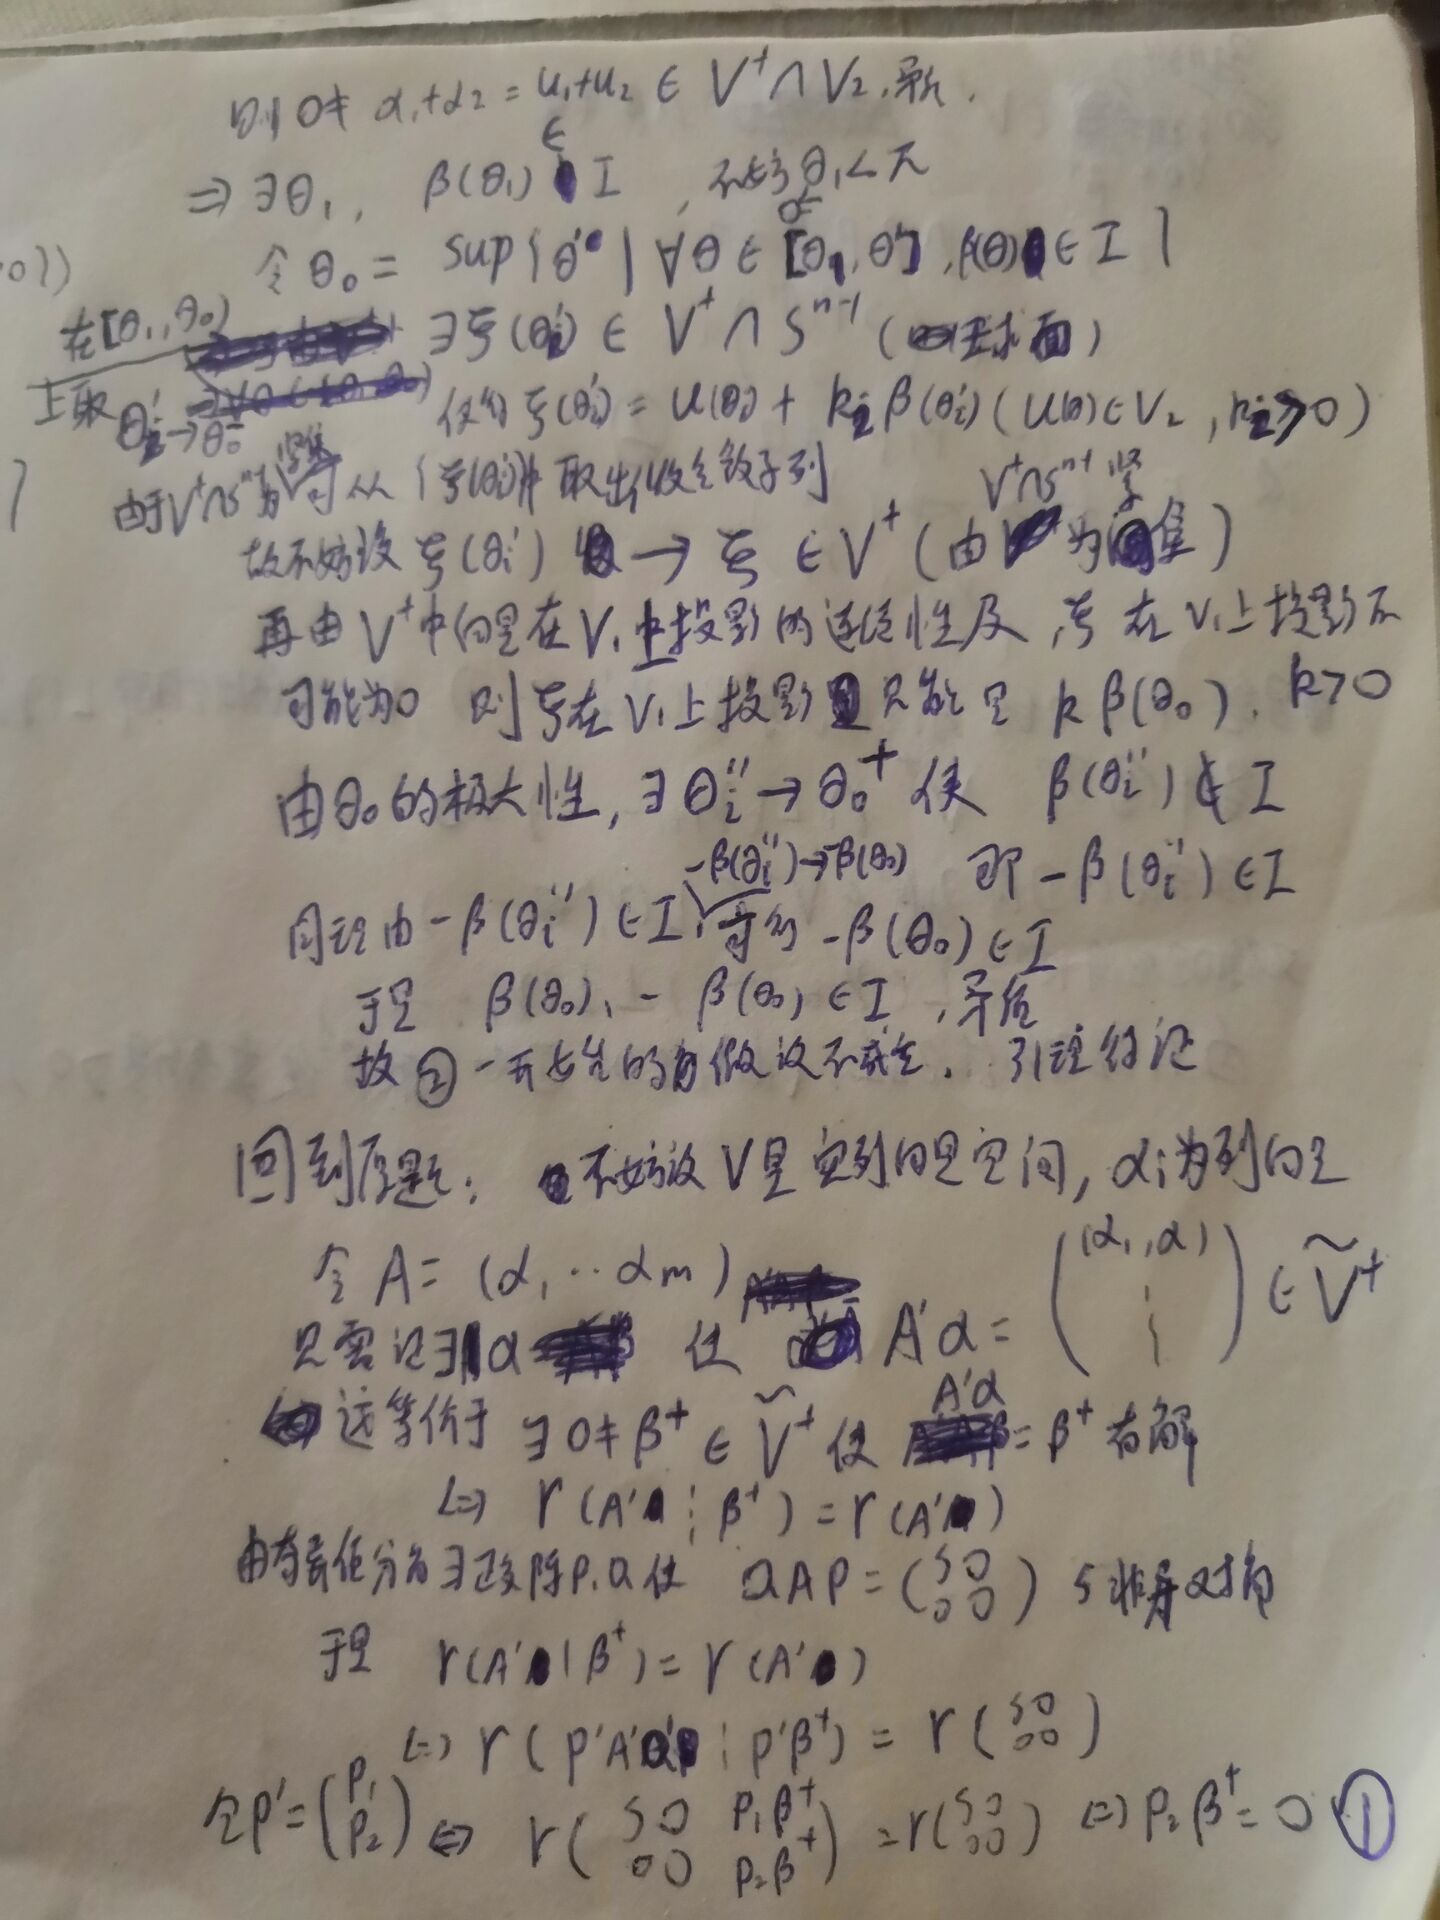 则 0≠ α₁+α₂ = u₁+u₂ ∈ V⁺∩V₂, 矛盾.
⇒ ∃θ₁, β(θ₁) ∈ I, 不妨 0≤θ₁<π
0))
令 θ₀ = sup{θ' | ∀θ∈[θ₁,θ'], β(θ)∈I}
在[θ₁,θ₀) ∃ξ(θᵢ') ∈ V⁺∩Sⁿ⁻¹ (球面)
上取 θᵢ'→θ₀⁻ 使得 ξ(θᵢ') = u(θᵢ) + kᵢβ(θᵢ') (u(θ)∈V₂, kᵢ≥0)
由于V⁺∩Sⁿ⁻¹为紧集 可从{ξ(θᵢ')}中取出收敛子列
故不妨设 ξ(θᵢ') → ξ ∈ V⁺ (由V⁺∩Sⁿ⁻¹为紧集)
再由V⁺中向量在V₁上投影的连续性及, ξ在V₁上投影不
可能为0 则ξ在V₁上投影只能是 kβ(θ₀), k>0
由θ₀的极大性, ∃θᵢ''→θ₀⁺ 使 β(θᵢ'')∉I
即 -β(θᵢ'')∈I
同理由 -β(θᵢ'')∈I, -β(θᵢ'')→-β(θ₀) 可得 -β(θ₀)∈I
于是 β(θ₀), -β(θ₀)∈I, 矛盾
故②一开始的假设不成立. 引理得证
回到原题: 不妨设V是实列向量空间, αᵢ为列向量
令A = (α₁…αm)
只需证∃α 使 A'α = ((α₁,α) ⋮) ∈ Ṽ⁺
这等价于 ∃0≠β⁺∈Ṽ⁺ 使 A'α = β⁺有解
⇔ r(A' ⋮ β⁺) = r(A')
由奇异值分解∃正交阵P,Q使 QAP = (S 0 / 0 0) S非异对角
于是 r(A' | β⁺) = r(A')
⇔ r(P'A'Q' ⋮ P'β⁺) = r(S 0 / 0 0)
令P' = (P₁ / P₂) ⇔ r(S 0 P₁β⁺ / 0 0 P₂β⁺) = r(S 0 / 0 0) ⇔ P₂β⁺ = 0 ①